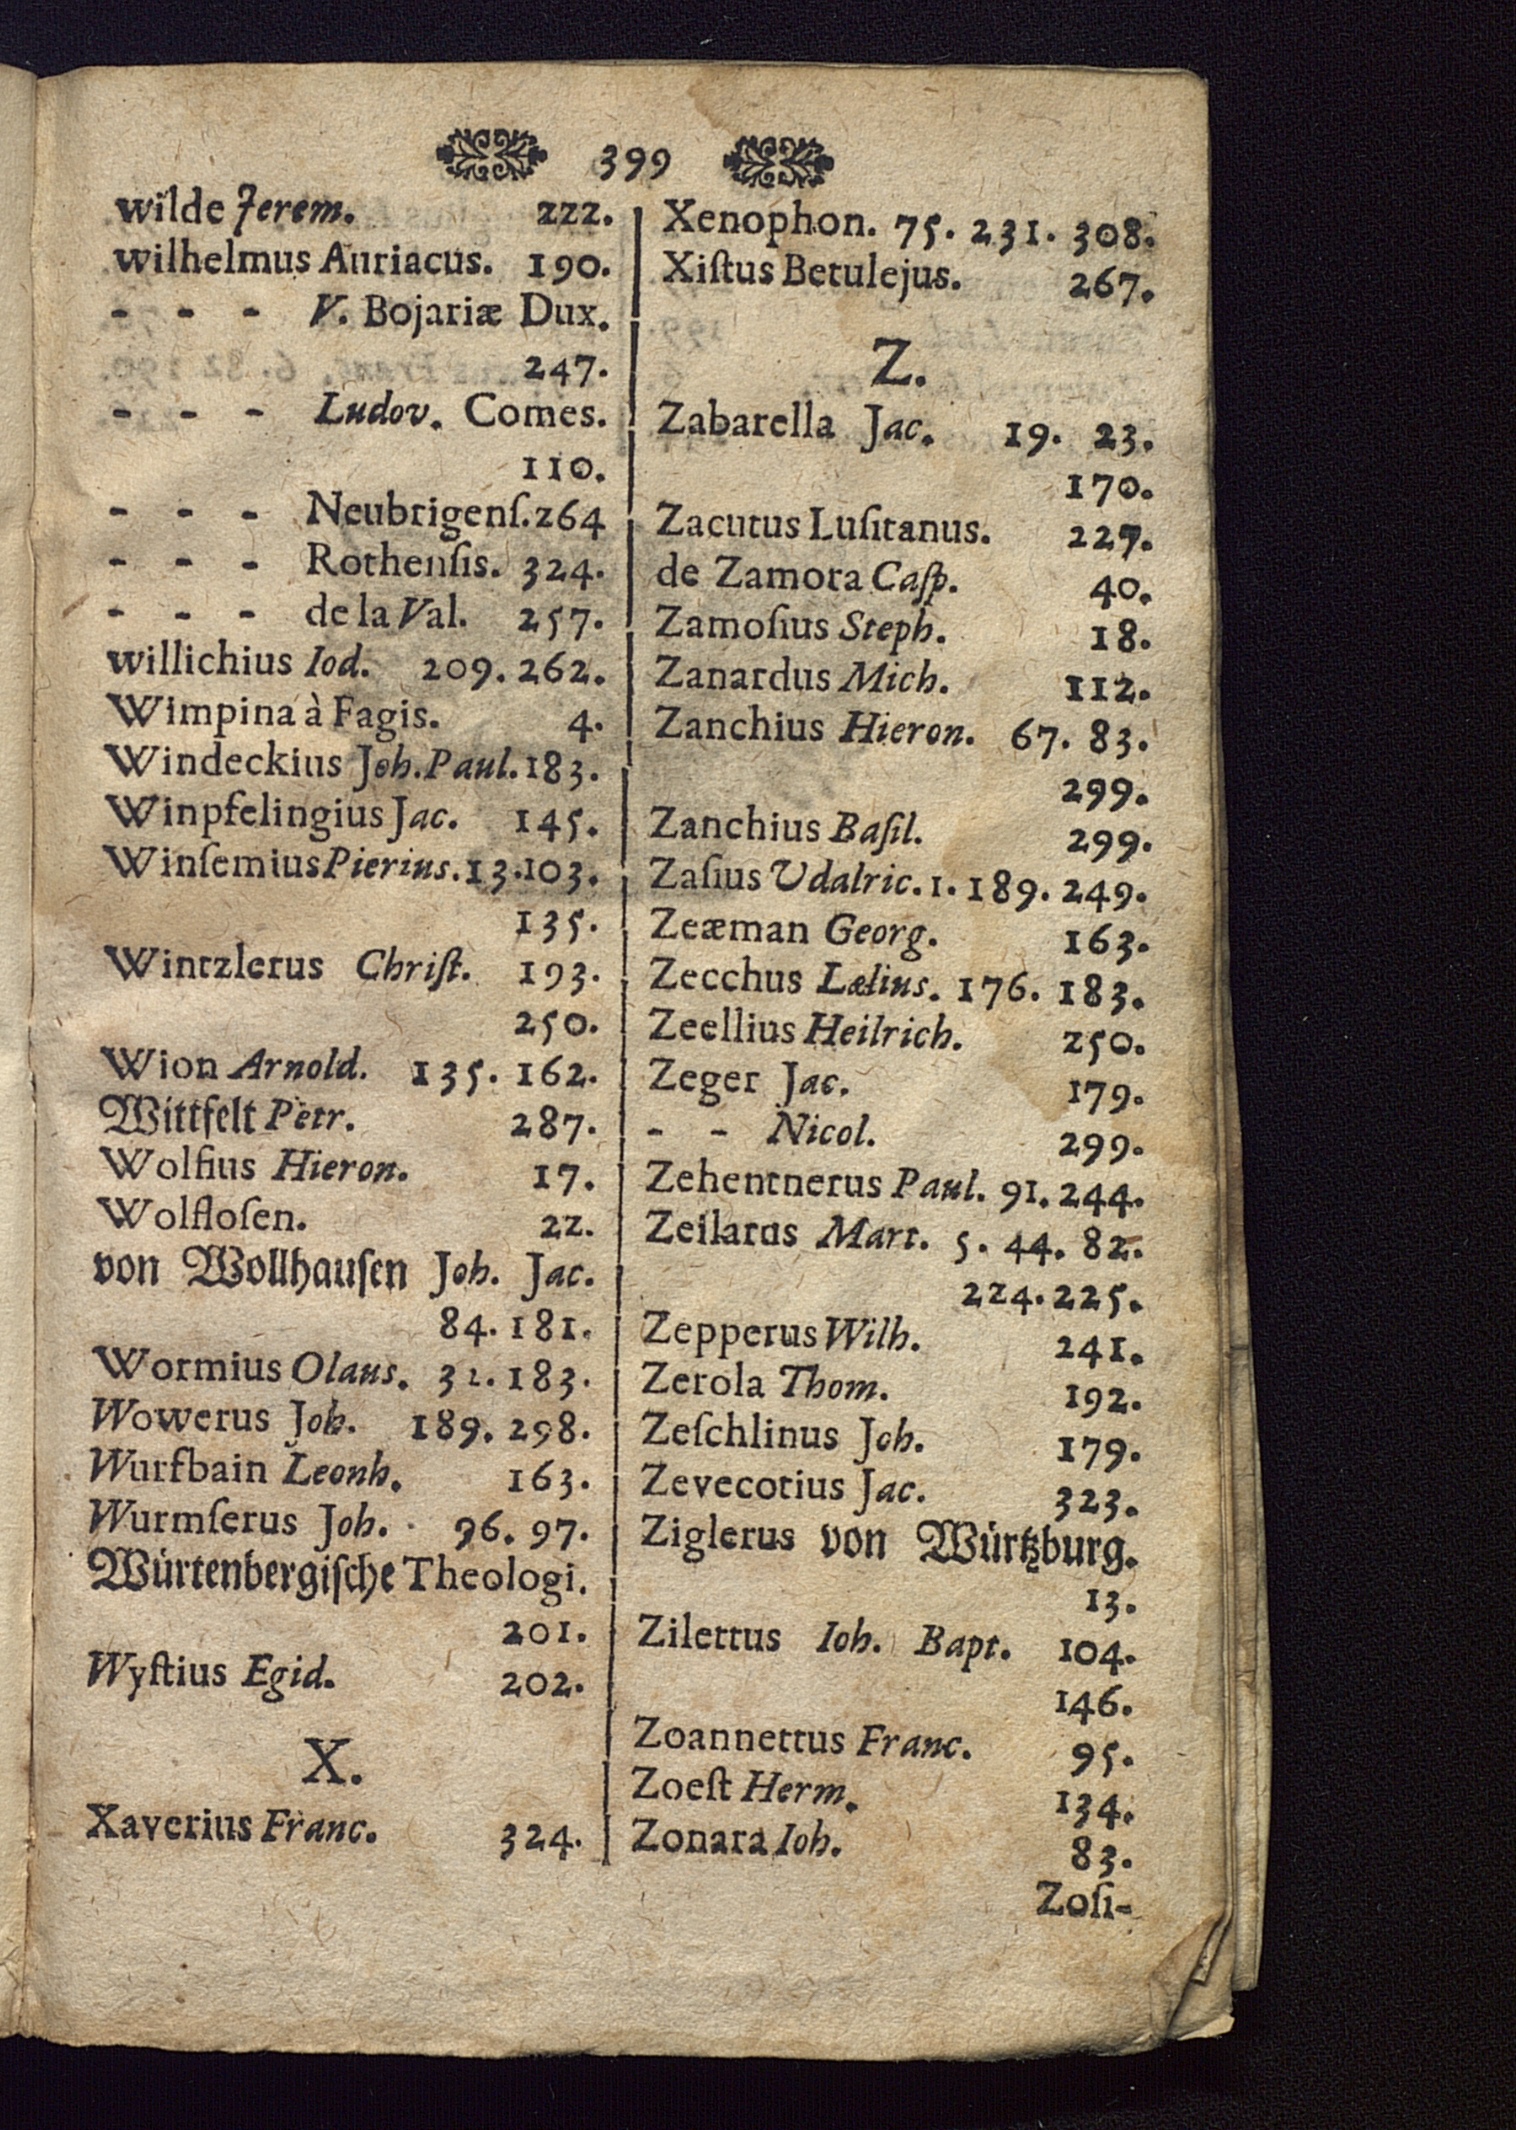 399
wilde Jerem. 222.
wilhelmus Auriacus. 190.
- - - V. Bojariæ Dux.
247.
- - - Ludov. Comes.
110.
- - - Neubrigenſ. 264
- - - Rothenſis. 324.
- - - de la Val. 257.
willichius Iod. 209. 262.
Wimpina à Fagis. 4.
Windeckius Joh. Paul. 183.
Winpfelingius Jac. 145.
Winſemius Pierius. 13. 103.
135.
Wintzlerus Chriſt. 193.
250.
Wion Arnold. 135. 162.
Wittfelt Petr. 287.
Wolfius Hieron. 17.
Wolfloſen. 22.
von Wollhauſen Joh. Jac.
84. 181.
Wormius Olaus. 32. 183.
Wowerus Joh. 189. 298.
Wurfbain Leonh. 163.
Wurmſerus Joh. 96. 97.
Würtenbergiſche Theologi.
201.
Wyſtius Egid. 202.
X.
Xaverius Franc. 324.
Xenophon. 75. 231. 308.
Xiſtus Betulejus. 267.
Z.
Zabarella Jac. 19. 23.
170.
Zacutus Luſitanus. 227.
de Zamora Caſp. 40.
Zamoſius Steph. 18.
Zanardus Mich. 112.
Zanchius Hieron. 67. 83.
299.
Zanchius Baſil. 299.
Zaſius Udalric. 1. 189. 249.
Zeæman Georg. 163.
Zecchus Lælius. 176. 183.
Zeellius Heilrich. 250.
Zeger Jac. 179.
- - Nicol. 299.
Zehentnerus Paul. 91. 244.
Zeilarus Mart. 5. 44. 82.
224. 225.
Zepperus Wilh. 241.
Zerola Thom. 192.
Zeſchlinus Joh. 179.
Zevecotius Jac. 323.
Ziglerus von Würtzburg.
13.
Zilettus Ioh. Bapt. 104.
146.
Zoannettus Franc. 95.
Zoeſt Herm. 134.
Zonara Ioh. 83.
Zoſi-